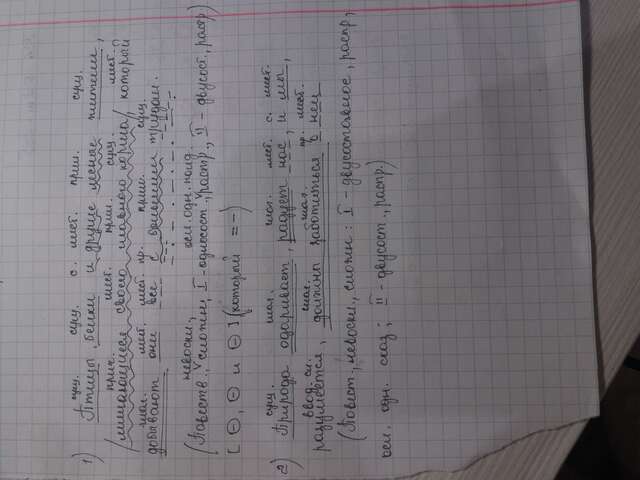 сущ. сущ. с. мест. прил. сущ.
1) Птицы, белки и другие лесные жители,
прич. мест. прил. сущ. мест.
/лишающиеся своего главного корма/, который
глаг. мест. мест. пр. прил. сущ.
добывают они все с большим трудом.
невоскл., осл. одн. подл.
(Повеств., сложн., I - односост., распр., II - двусост., распр)
[ O, O и O ] (который = -)
сущ. глаг. глаг. мест. с. мест.
2) Природа одаривает, радует нас, и мы,
ввод. сл. глаг. глаг. пр. мест.
разумеется, должны заботиться о ней
(Повест., невоскл., сложн: I - двусоставное, распр,
осл. одн. сказ; II - двусост., распр.)